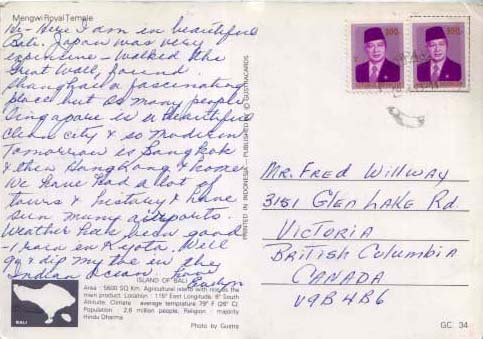 Mengwi Royal Temple
Hi - Here I am in beautiful
Bali. Japan was very
expensive - walked the
Great Wall, found
Shanghai a fascinating
place but so many people
Singapore is a beautiful
clean city & so modern
Tomorrow is Bangkok
& then Hong Kong & home
We have had a lot of
tours & history & have
seen many airports.
Weather has been good
- 1 rain en Kyoto. Will
go & dip my toe in the
Indian Ocean. Love
ISLAND OF BALI
Area : 5600 SQ Km. Agricultural island with rice as the
main product. Location : 115° East Longitude, 8° South
Altitude. Climate : average temprature 79° F (26° C).
Population : 2,6 million people. Religion : majority
Hindu Dharma
Photo by Gustra
BALI
PRINTED IN INDONESIA – PUBLISHED BY © GUSTRACARDS
300
300
Mr. Fred Willway
3151 Glen Lake Rd.
Victoria
British Columbia
CANADA
V9B 4B6
GC 34